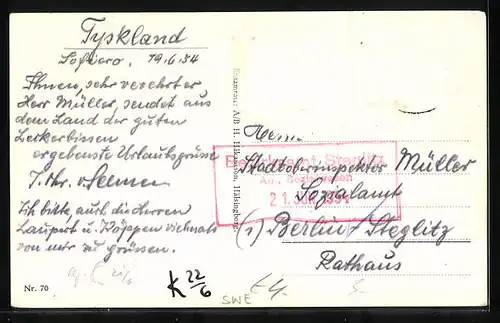 Tyskland
Sofiero, 19.6.54
Ihnen, sehr verehrter
Herr Müller, sendet aus
dem Land der guten
Leckerbissen
ergebenste Urlaubsgrüsse
Ihr
Ich bitte, auch die Herren
Laupert u. Köppen vielmals
von mir zu grüssen.
Nr. 70
Ensamrätt: A/B H. Håkansson, Hälsingborg
Herrn
Stadtoberinspektor Müller
Sozialamt
(1) Berlin-Steglitz
Rathaus
Bezirksamt Steglitz
Abt. Sozialwesen
21. JUN. 1954
K 22/6
SWE